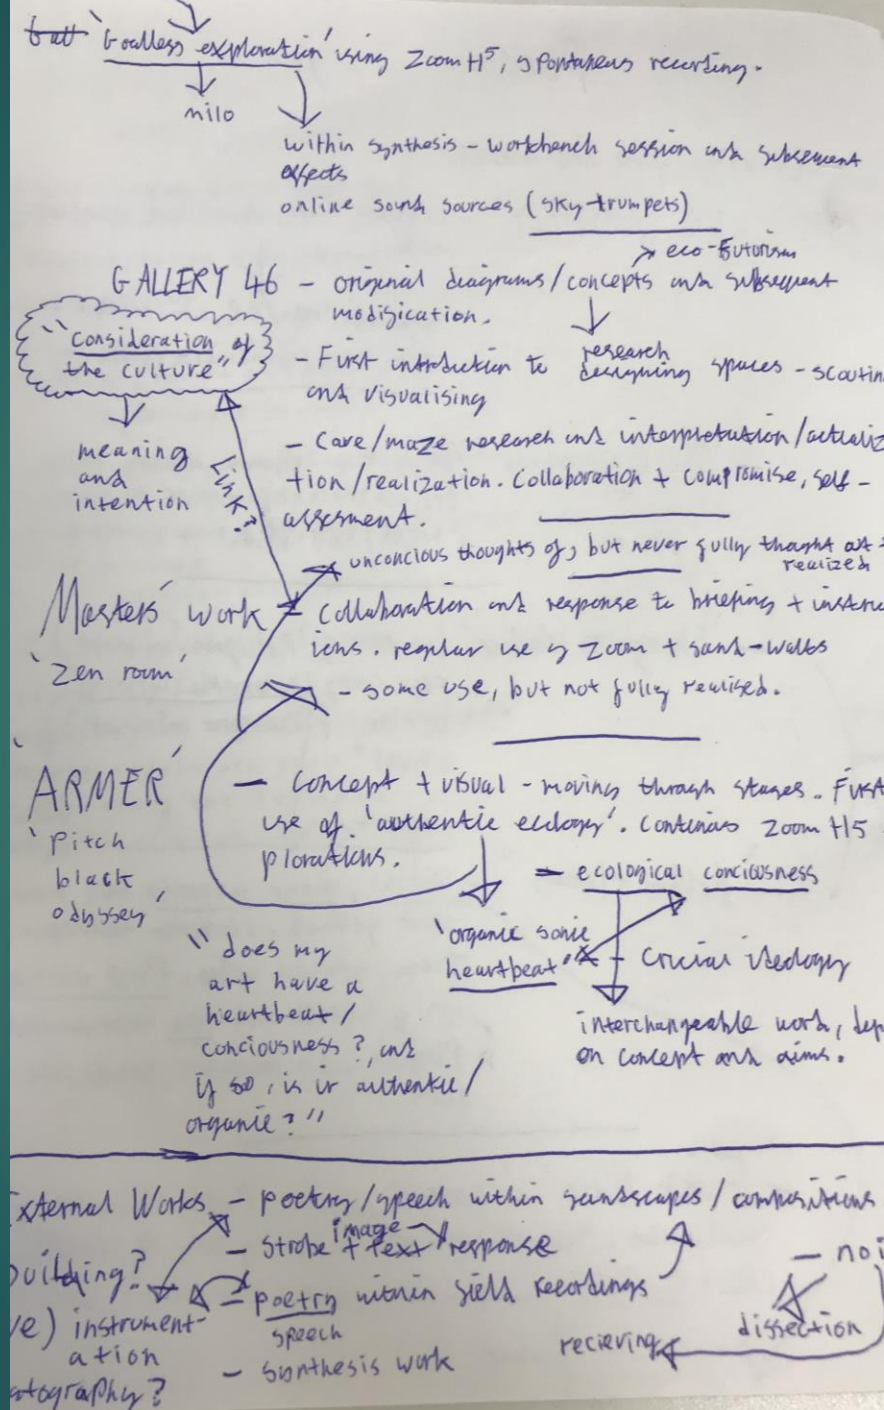 'Goalless exploration' using Zoom H5, spontaneus recording.
nilo
within synthesis - workbench session and subsequent
effects
online sound sources (sky-trumpets)
eco-futurism
GALLERY 46 - original diagrams/concepts and subsequent
modification.
"consideration of
the culture"
meaning
and
intention
Link?
- First introduction to research designing spaces - scoutin
and visualising
- Care/maze research and interpretation/actualiz
tion/realization. Collaboration + compromise, self-
assesment.
unconcious thoughts of, but never fully thought out
realized
Masters' work - Collaboration and response to briefing + instruc
'zen room'
ions. regular use of Zoom + sound-walks
- some use, but not fully realised.
'ARMER'
'Pitch
black
odyssey'
- Concept + visual - moving through stages. First
use of 'authentic ecology'. Continues Zoom H5
plorations.
- ecological conciousness
'organic sonic
heartbeat'
- Crucial ideology
interchangeable work, dep
on concept and aims.
"does my
art have a
heartbeat/
conciousness?, and
if so, is it authentic/
organic?"
External Works - poetry/speech within soundscapes/compositions
- Strobe image + text response
building?
ve) instrument-
ation
atography?
- poetry within field recordings
speech
- synthesis work
- noi
dissection
recieving